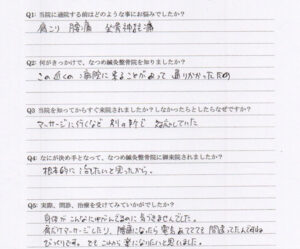 Q1: 当院に通院する前はどのような事にお悩みでしたか?
肩こり 腰痛 坐骨神経痛
Q2: 何がきっかけで、なつめ鍼灸整骨院を知りましたか?
この近くの 病院に 来ることがあって 通りかかったため
Q3 当院を知ってからすぐ来院されましたか?しなかったとしたらなぜですか?
マッサージに行くなど 別の所で
Q4: なにが決め手となって、なつめ鍼灸整骨院に御来院されましたか?
根本的に 治したいと思ったから。
Q5: 実際、問診、治療を受けてみていかがでしたか?
身体がこんなにゆがんでるのに 気づきませんでした。
肩だけマッサージしたり、腰痛になったら 電気あてて